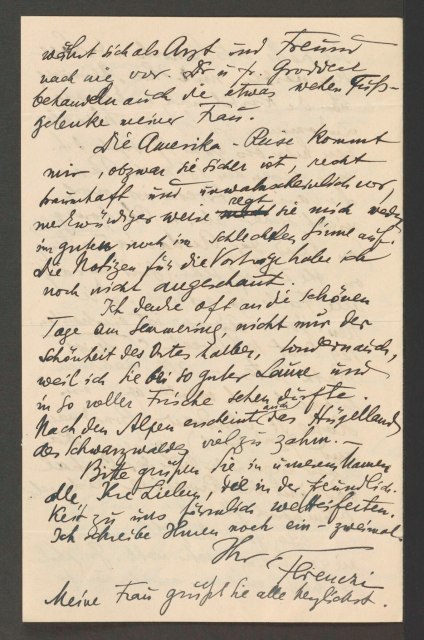 währt sich als Arzt und Freund
nach wie vor. Dr u. Fr. Groddeck
behandeln auch die etwas wehen Fuß-
gelenke meiner Frau.
Die Amerika-Reise kommt
mir, obzwar sie sicher ist, recht
traumhaft und unwahrscheinlich vor,
merkwürdiger weise regt sie mich weder
im guten noch im schlechten Sinne auf.
Die Notizen für die Vorträge habe ich
noch nicht angeschaut.
Ich denke oft an die schönen
Tage am Semmering, nicht nur der
Schönheit des Ortes halber, sondern auch,
weil ich Sie bei so guter Laune und
in so voller Frische sehen durfte.
Nach den Alpen erscheint auch das Hügelland
des Schwarzwaldes viel zu zahm. –
Bitte grüßen Sie in unserem Namen
alle Ihre Lieben, die in der Freundlich-
keit zu uns förmlich wetteiferten.
Ich schreibe Ihnen noch ein-zweimal
Ihr Ferenczi
Meine Frau grüßt Sie alle herzlichst.